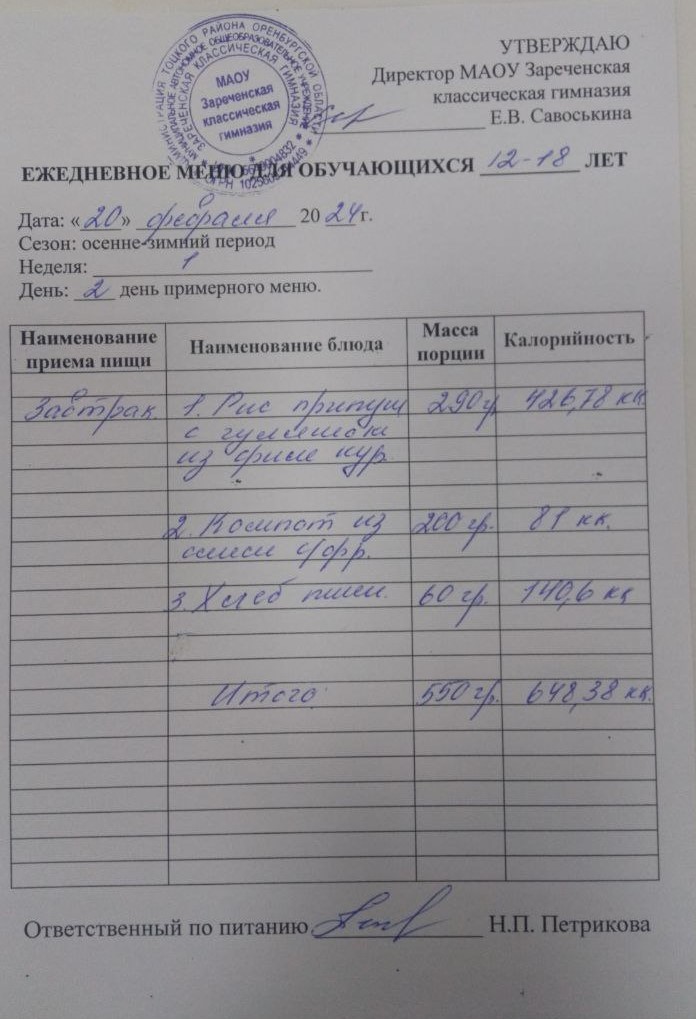 МАОУ
Зареченская
классическая
гимназия
УТВЕРЖДАЮ
Директор МАОУ Зареченская
классическая гимназия
Е.В. Савоськина
ЕЖЕДНЕВНОЕ МЕНЮ ДЛЯ ОБУЧАЮЩИХСЯ 12-18 ЛЕТ
Дата: «20» февраля 2024 г.
Сезон: осенне-зимний период
Неделя: 1
День: 2 день примерного меню.
Наименование приема пищи Наименование блюда Масса порции Калорийность
Завтрак 1. Рис припущ 290 гр 426,78 кк.
с гуляшом
из филе кур.
2. Компот из 200 гр. 81 кк.
смеси с/фр.
3. Хлеб пшен. 60 гр. 140,6 кк
Итого 550 гр. 648,38 кк.
Ответственный по питанию Н.П. Петрикова